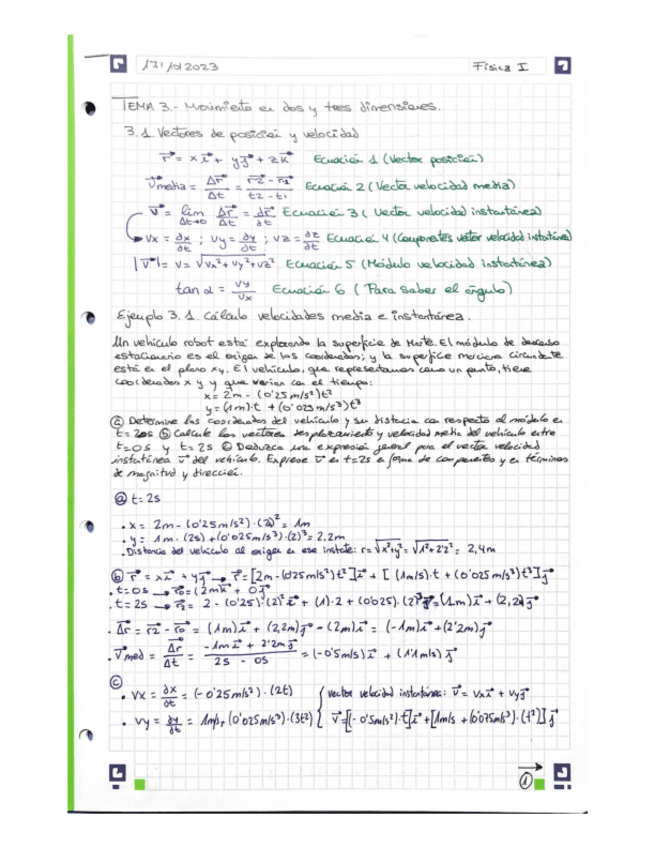 17/10/2023 Física I
TEMA 3.- Movimiento en dos y tres dimensiones.
3.1. Vectores de posición y velocidad
r = x i + y j + z k Ecuación 1 (Vector posición)
Vmedia = Δr/Δt = (r2 - r1)/(t2 - t1) Ecuación 2 (Vector velocidad media)
V = lim Δt→0 Δr/Δt = dr/dt Ecuación 3 (Vector velocidad instantánea)
Vx = ∂x/∂t ; Vy = ∂y/∂t ; Vz = ∂z/∂t Ecuación 4 (Componentes vector velocidad instantánea)
|V| = V = √(Vx² + Vy² + Vz²) Ecuación 5 (Módulo velocidad instantánea)
tan α = Vy/Vx Ecuación 6 (Para saber el ángulo)
Ejemplo 3.1. Cálculo velocidades media e instantánea.
Un vehículo robot está explorando la superficie de Marte. El módulo de descenso
estacionario es el origen de las coordenadas; y la superficie marciana circundante
está en el plano xy. El vehículo, que representamos como un punto, tiene
coordenadas x y y que varían con el tiempo:
x = 2m - (0'25m/s²)t²
y = (1m)·t + (0'025m/s³)t³
ⓐ Determine las coordenadas del vehículo y su distancia con respecto al módulo en
t = 2s ⓑ Calcule los vectores desplazamiento y velocidad media del vehículo entre
t=0s y t=2s ⓒ Deduzca una expresión general para el vector velocidad
instantánea v del vehículo. Exprese v en t=2s en forma de componentes y en términos
de magnitud y dirección.
ⓐ t=2s
· x = 2m - (0'25m/s²)·(2)² = 1m
· y = 1m·(2s) + (0'025m/s³)·(2)³ = 2,2m
· Distancia del vehículo al origen en ese instante: r = √(x²+y²) = √(1²+2'2²) = 2,4m
ⓑ r = x i + y j → r = [2m - (0'25m/s²)t²] i + [(1m/s)·t + (0'025m/s³)t³] j
· t=0s → r0 = (2m) i + 0 j
· t=2s → r2 = 2 - (0'25)·(2)² i + (1)·2 + (0'025)·(2)³ j = (1m) i + (2,2) j
· Δr = r2 - r0 = (1m) i + (2,2m) j - (2m) i = (-1m) i + (2'2m) j
· Vmed = Δr/Δt = (-1m i + 2'2m j)/(2s - 0s) = (-0'5m/s) i + (1'1m/s) j
ⓒ
· Vx = ∂x/∂t = (-0'25m/s²)·(2t) { vector velocidad instantánea: V = Vx i + Vy j
· Vy = ∂y/∂t = 1m/s + (0'025m/s³)·(3t²) { V = [(-0'5m/s²)·t] i + [1m/s + (0'075m/s³)·(t²)] j
1